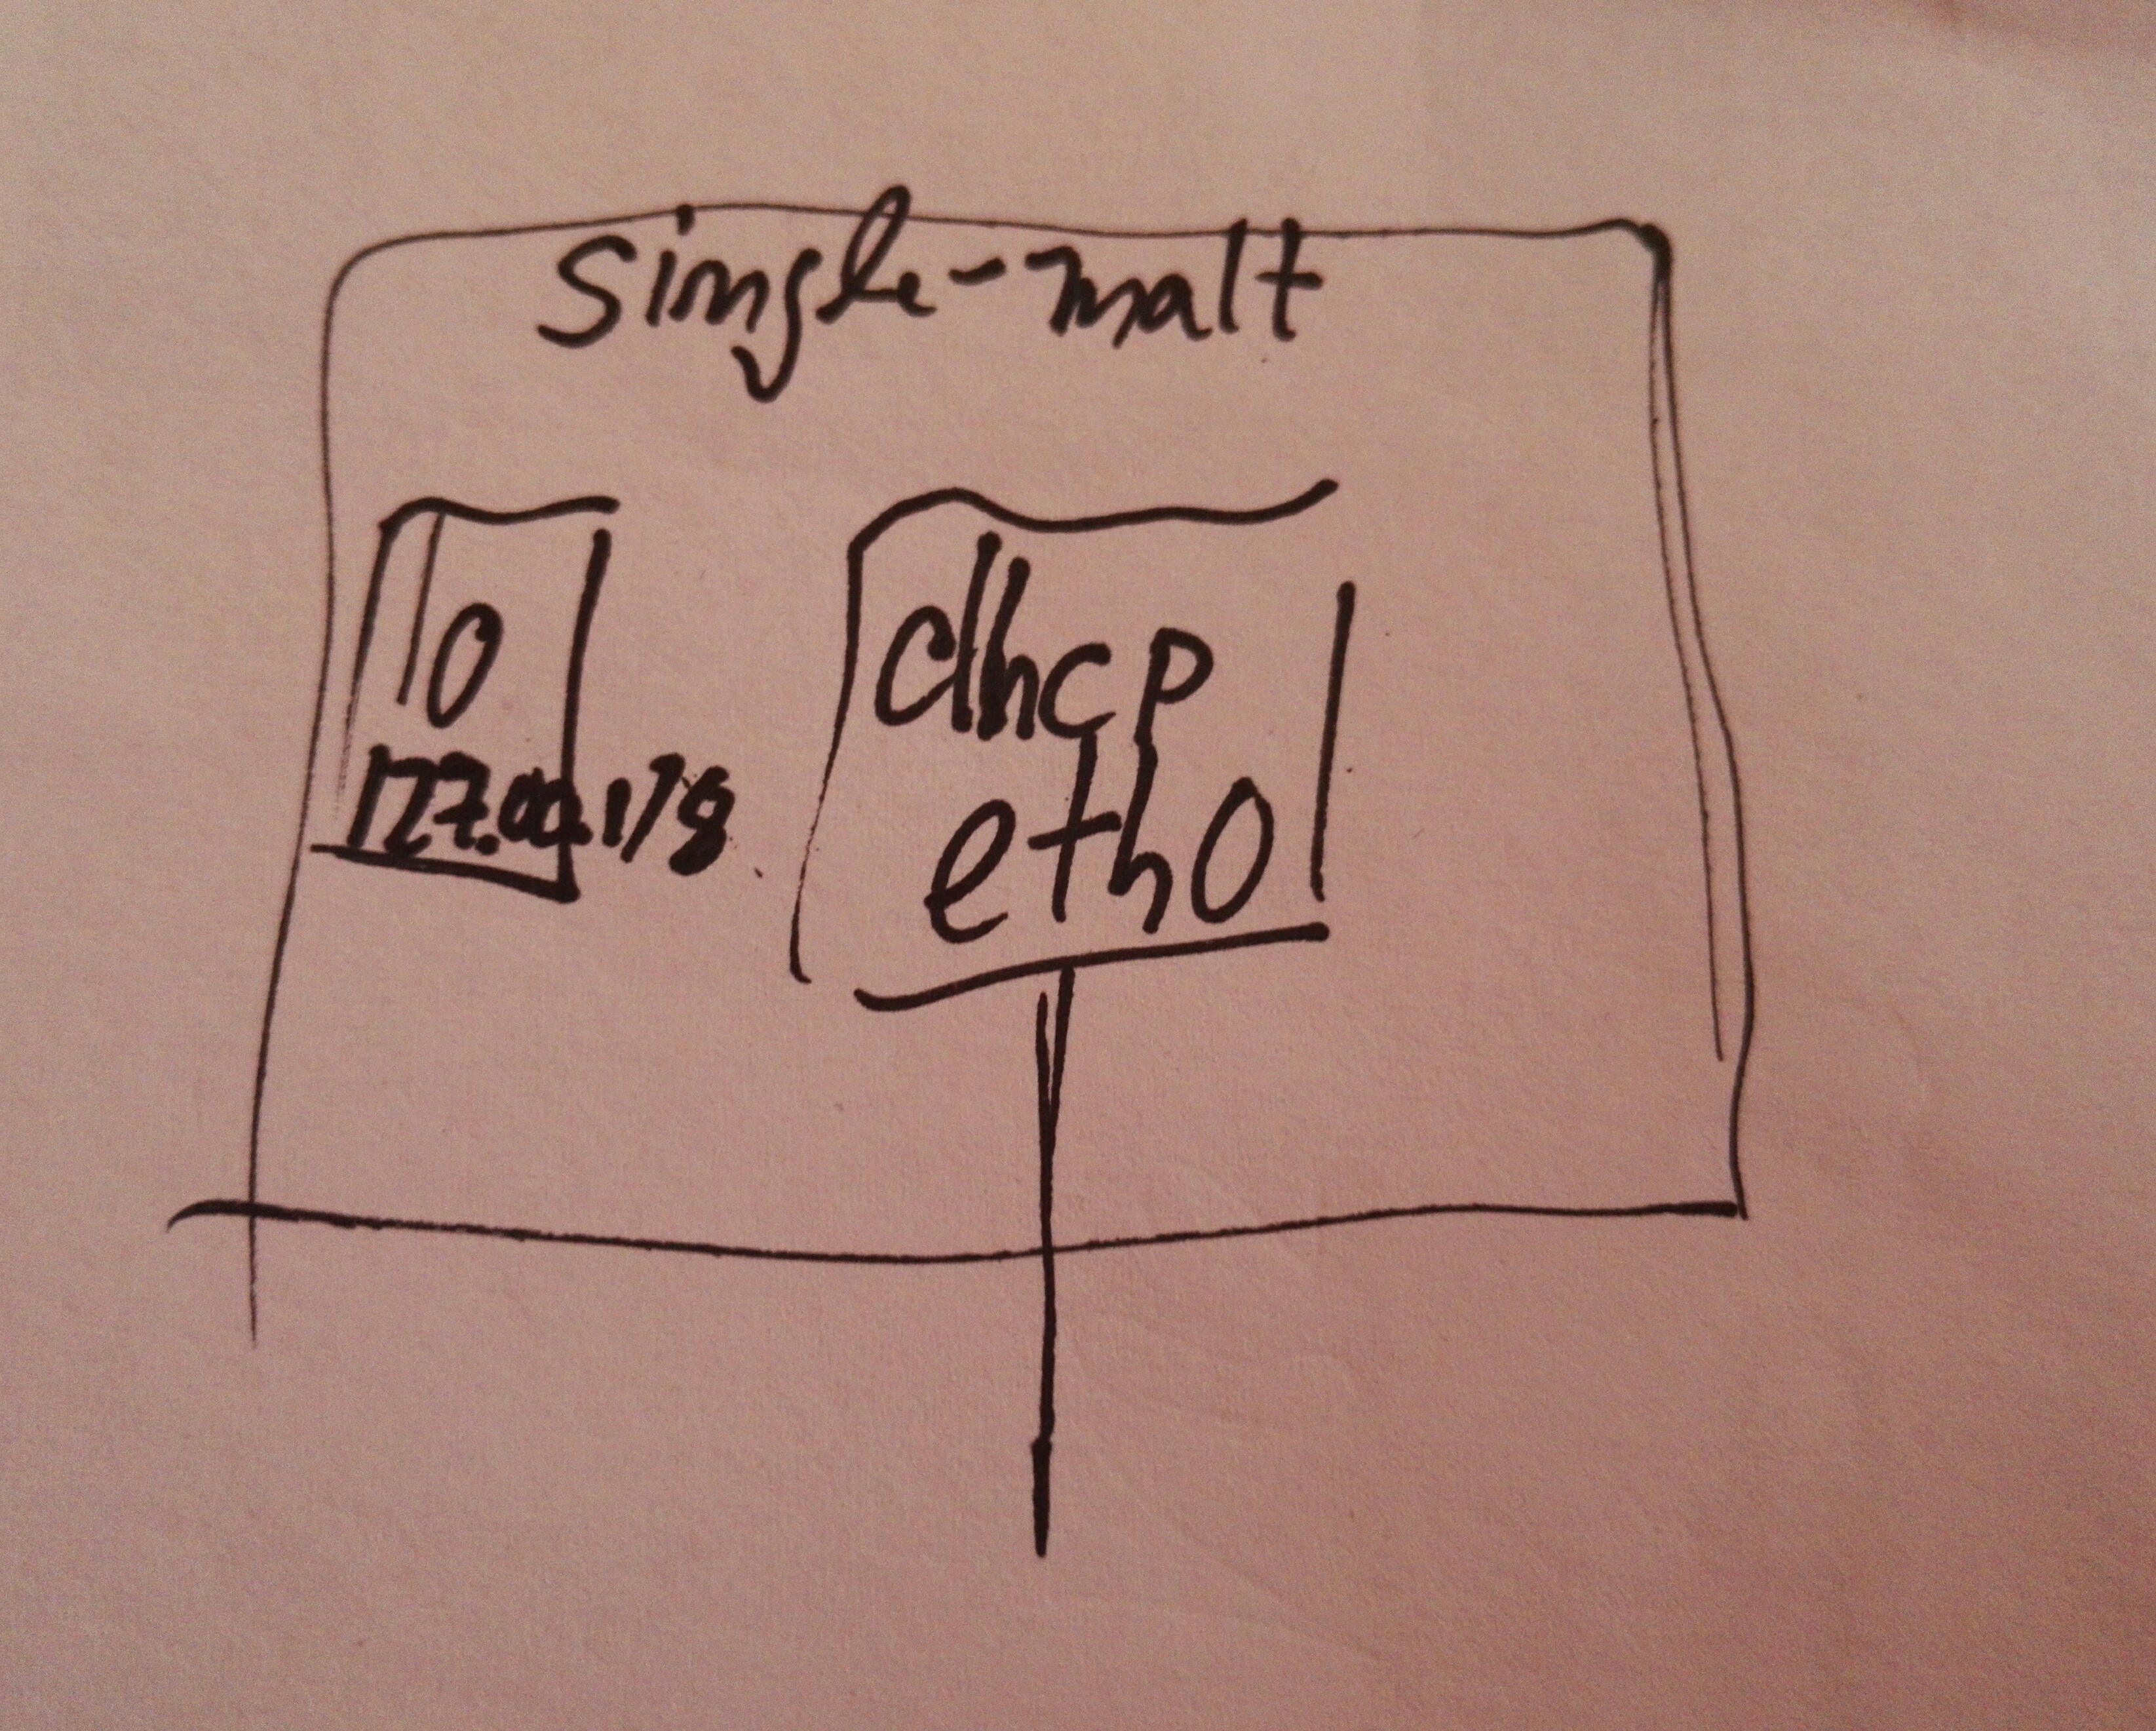 single-malt
lo
127.0.0.1/8
dhcp
eth0